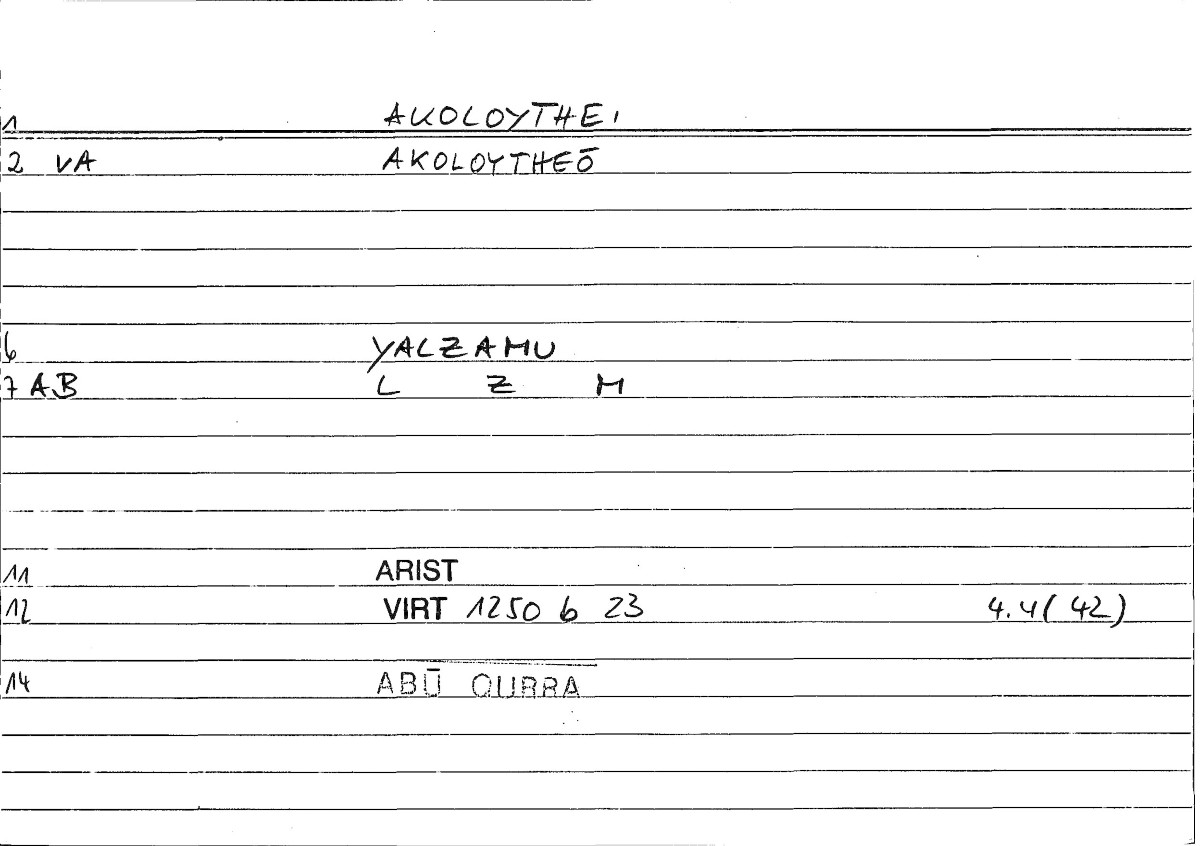 1 AKOLOYTHEI
2 VA AKOLOYTHEŌ
6 YALZAMU
7 AB L Z M
11 ARIST
12 VIRT 1250 b 23 4.4(42)
14 ABŪ QURRA